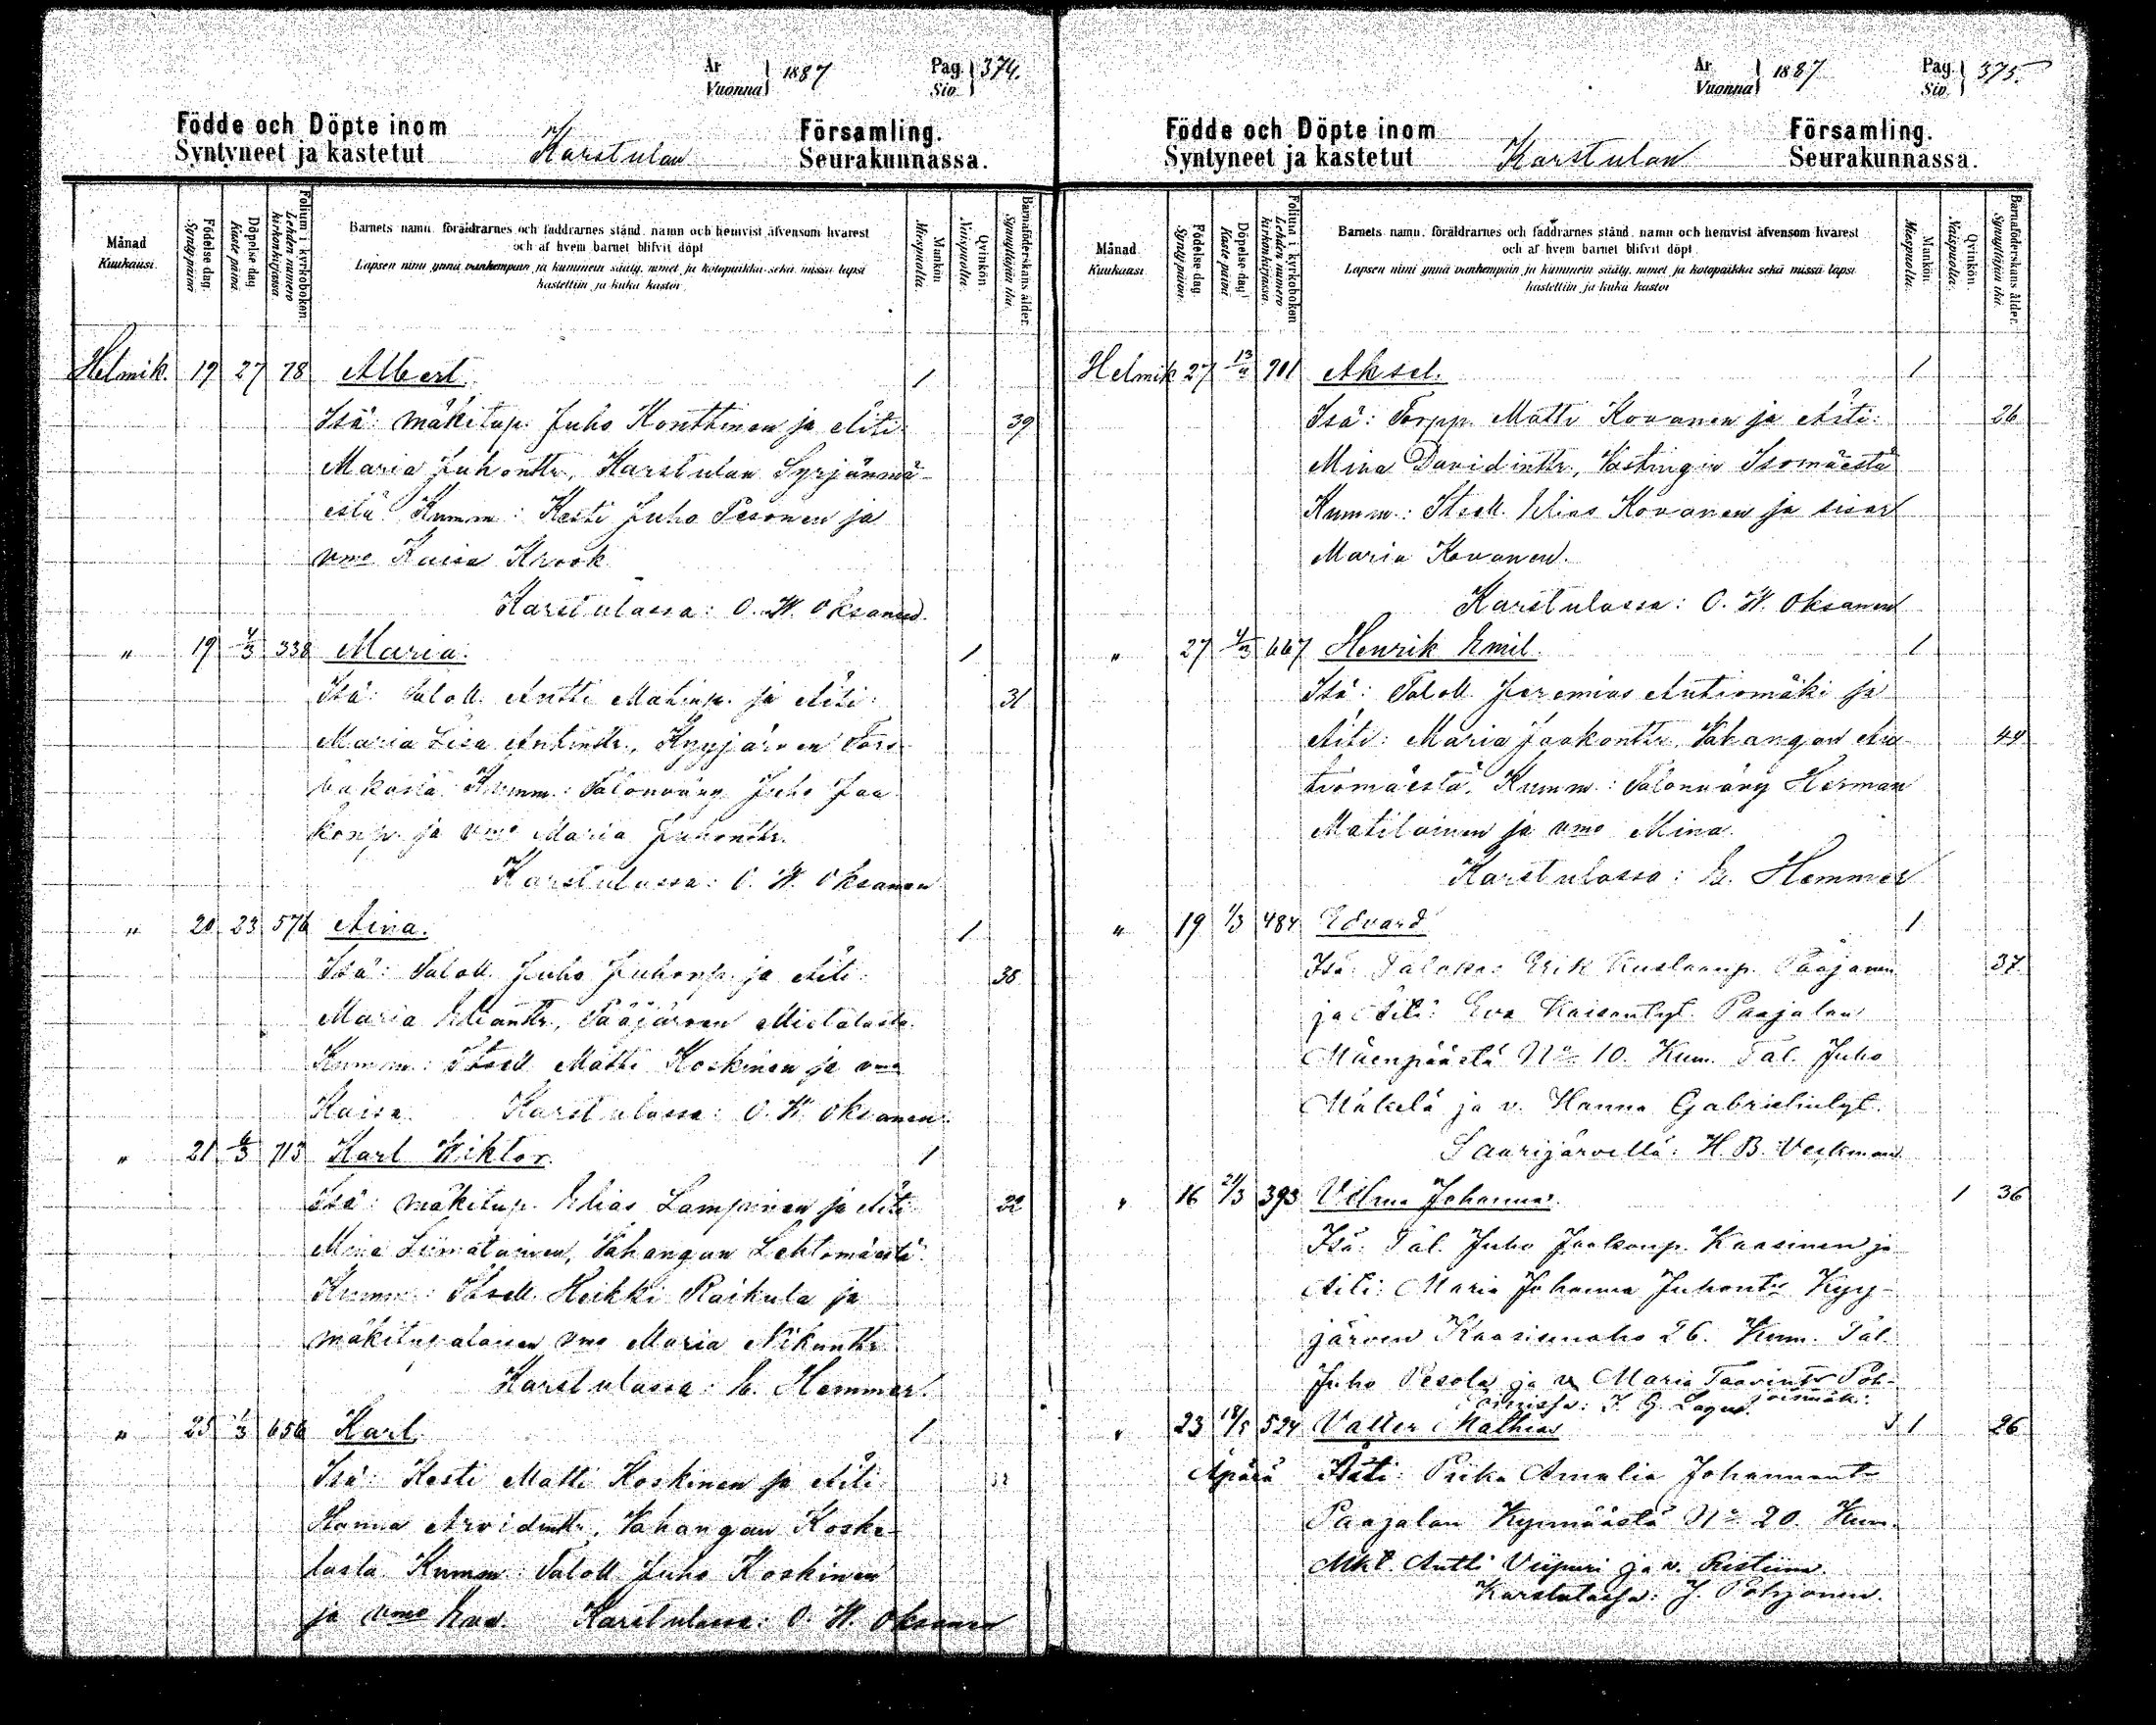 År
Vuonna } 1887
Pag.
Siv. } 374.
Födde och Döpte inom
Syntyneet ja kastetut
Karstulan
Församling.
Seurakunnassa.
Månad
Kuukausi.
Födelse dag.
Synty päivä
Döpelse dag
Kaste päivä.
Folium i kyrkoboken.
Lehden numero kirkonkirjassa
Barnets namn, föräldrarnes och faddrarnes stånd, namn och hemvist äfvensom hvarest
och af hvem barnet blifvit döpt
Lapsen nimi ynnä vanhempain ja kummein sääty, nimet ja kotopaikka sekä missä lapsi
kastettiin ja kuka kastoi
Mankön
Miespuolia.
Qvinkön.
Naispuolia.
Barnaföderskans ålder.
Synnyttäjän ikä.
Helmik. 19 27 78 Albert 1
Isä: mäkitup. Juho Konttinen ja Äiti 39
Maria Juhontr., Karstulan Syrjänmä-
estä Kumm: Kesti Juho Pesonen ja
vmo Kaisa Krook
Karstulassa: O. W. Oksanen.
" 19 4/3 338 Maria. 1
Isä: Taloll. Antti Matinp. ja Äiti: 31
Maria Lisa Antintr., Kyyjärven
Kumm: Talonväny Juho Jaa
konp. ja vmo Maria Juhontr.
Karstulassa: O. W. Oksanen
" 20 23 576 Aina. 1
Isä: Taloll. Juho Juhonp. ja Äiti: 38
Maria Eliantr., Pääjärven
Kumm: Itsell. Matti Koskinen ja vmo
Kaisa Karstulassa: O. W. Oksanen.
" 21 6/3 713 Karl Wiktor. 1
Isä: mäkitup. Elias Lampinen ja Äiti 22
Mina Liimatainen, Vahangan Lehtomäestä
Kumm: Itsell. Heikki Raikula ja
mäkitupalaisen vmo Maria
Karstulassa: E. Hemmer.
" 25 1/3 656 Karl. 1
Isä: Kesti Matti Koskinen ja Äiti
Hanna Arvidintr., Vahangan Koske-
lasta Kumm: Taloll. Juho Koskinen
ja vmo Eva. Karstulassa: O. W. Oksanen
År
Vuonna } 1887
Pag.
Siv. } 375.
Födde och Döpte inom
Syntyneet ja kastetut
Karstulan
Församling.
Seurakunnassa.
Månad
Kuukausi.
Födelse dag.
Synty päivä.
Döpelse dag
Kaste päivä
Folium i kyrkoboken
Lehden numero kirkonkirjassa.
Barnets namn, föräldrarnes och faddrarnes stånd, namn och hemvist äfvensom hvarest
och af hvem barnet blifvit döpt.
Lapsen nimi ynnä vanhempain ja kummein sääty, nimet ja kotopaikka sekä missä lapsi
kastettiin ja kuka kastoi
Mankön
Miespuolia.
Qvinkön.
Naispuolia.
Barnaföderskans ålder.
Synnyttäjän ikä.
Helmik 27 13/4 701 Aksel. 1
Isä: Torpp. Matti Kovanen ja Äiti: 26
Mina Davidintr., Vastingin Isomäestä
Kumm: Itsell. Elias Kovanen ja sisar
Maria Kovanen.
Karstulassa: O. W. Oksanen
" 27 4/3 667 Henrik Emil. 1
Isä: Taloll. Jeremias Autiomäki ja
Äiti: Maria Jaakontr. Vahangan Au- 44
tiomäestä. Kumm: Talonväny Herman
Matilainen ja vmo Mina.
Karstulassa: E. Hemmer
" 19 1/3 484 Edvard 1
Isä: Talokas: Erik Kustaanp. Paajanen 37
ja Äiti: Eva Kaisa Paajalan
Mäenpäästä No 10. Kum. Tal. Juho
Mäkelä ja v. Hanna Gabrielintyt.
Saarijärvellä: H. B. Veckman
" 16 21/3 393 Vilma Johanna. 1 36
Isä: Tal. Juho Jaakonp. Kaasinen ja
Äiti: Maria Johanna Juhontr Kyy-
järven Kaasisenaho 26. Kum. Tal.
Juho Pesola ja v. Maria Taavintr Poh-
joismäki.
J. G. Lagus.
" 23 18/5 524 Valter Mathias 1 26
Äpärä Äiti: Piika Amalia Johannantr
Paajalan Kynnäästä No 20. Kum.
Mkt. Antti Viipuri ja v. Ristiina.
Karstulassa: J. Pohjonen.